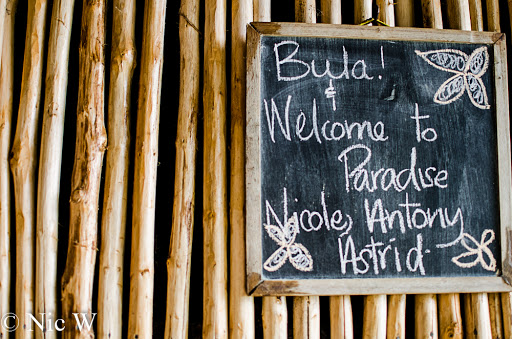 Bula!
&
Welcome to
Paradise
Nicole, Antony
Astrid.
© Nic W